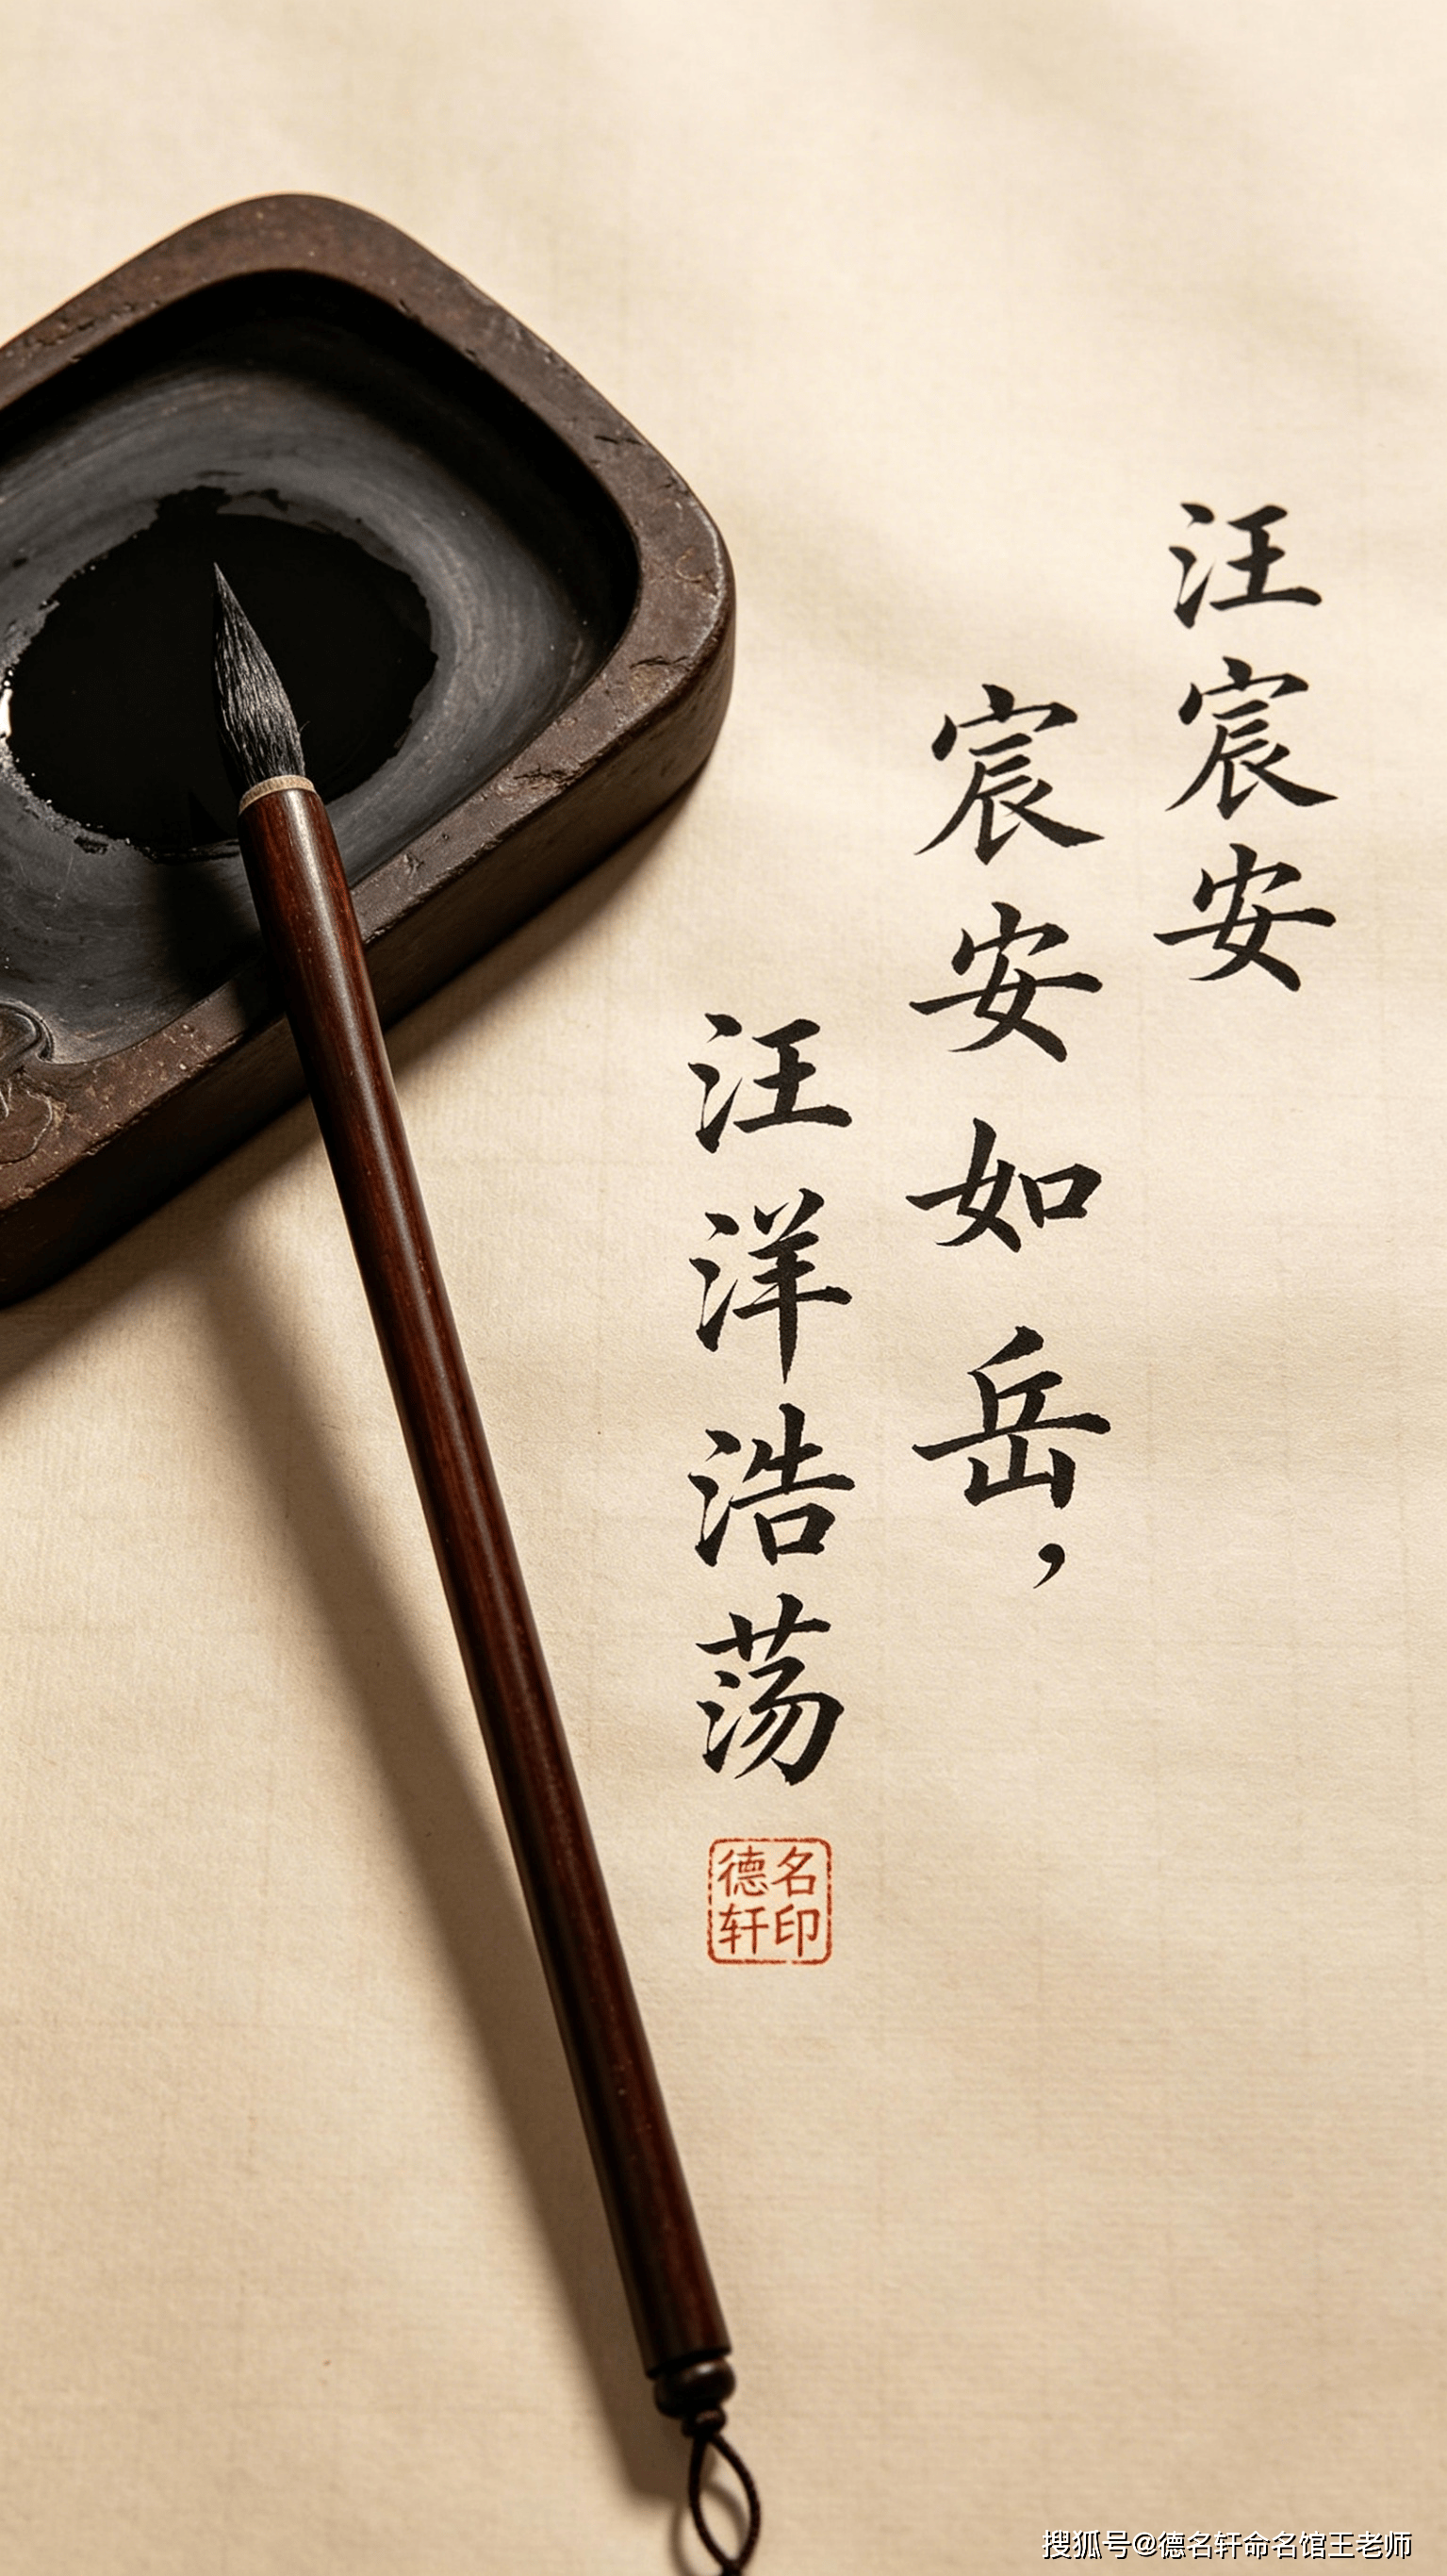 汪宸安
宸安如岳，
汪洋浩荡
德名
轩印
搜狐号@德名轩命名馆王老师